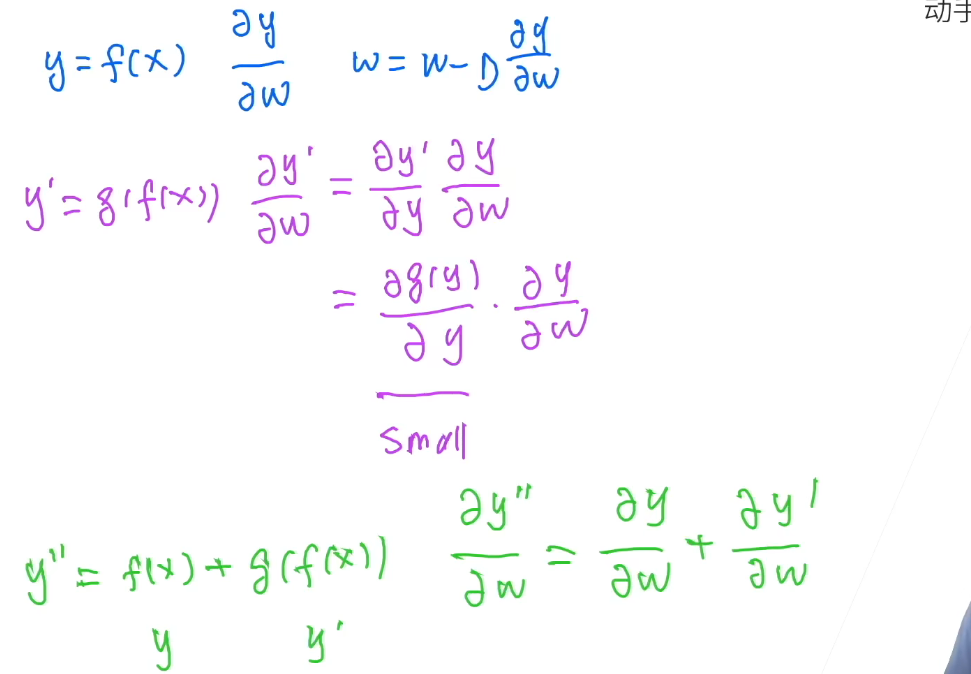 动手
y = f(x) ∂y/∂w w = w - η ∂y/∂w
y' = g(f(x)) ∂y'/∂w = ∂y'/∂y ∂y/∂w
= ∂g(y)/∂y · ∂y/∂w
small
y'' = f(x) + g(f(x)) ∂y''/∂w = ∂y/∂w + ∂y'/∂w
y y'